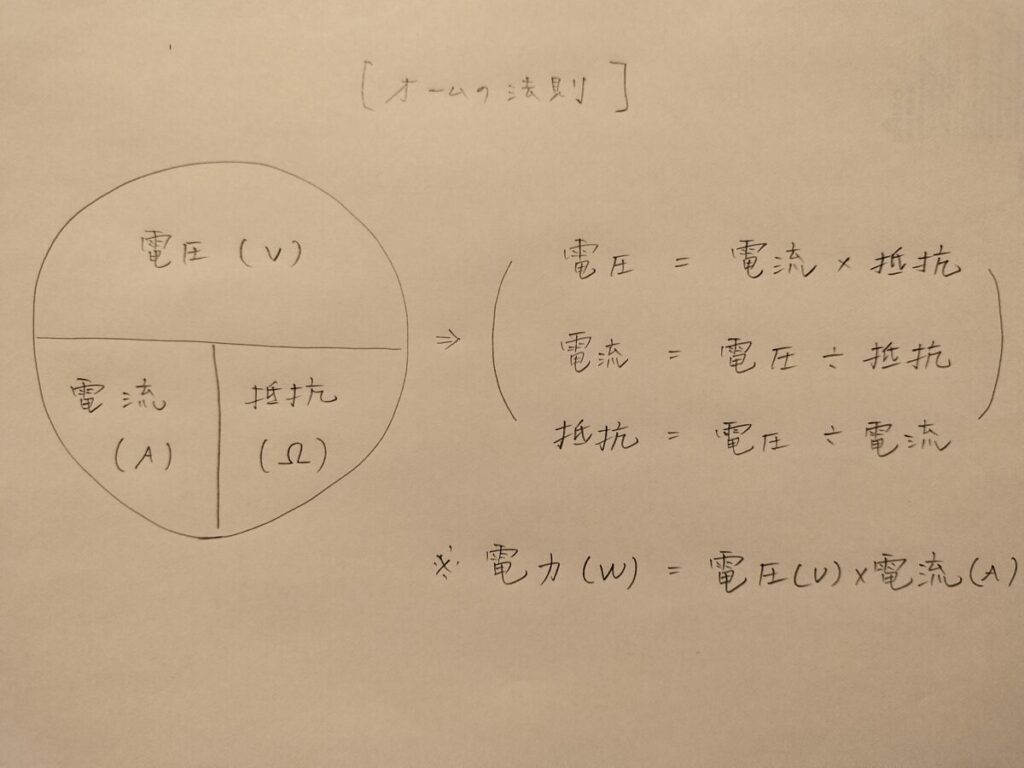 [オームの法則]
電圧(V)
電流
(A)
抵抗
(Ω)
⇒
電圧 = 電流 × 抵抗
電流 = 電圧 ÷ 抵抗
抵抗 = 電圧 ÷ 電流
※ 電力(W) = 電圧(V)×電流(A)